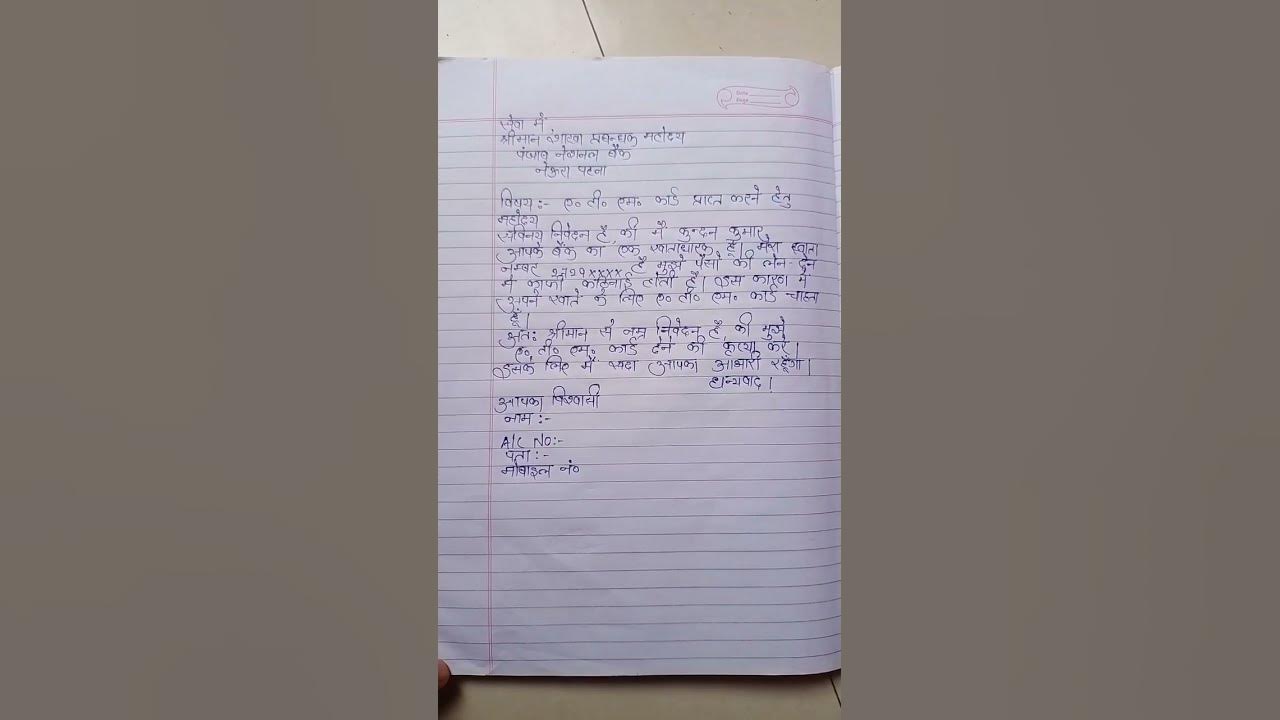 Date
Page
सेवा में
श्रीमान शाखा प्रबन्धक महोदय
पंजाब नेशनल बैंक
नेऊरा पटना
विषय:- ए० टी० एम० कार्ड प्राप्त करने हेतु
महोदय
सविनय निवेदन है की मैं कुन्दन कुमार
आपके बैंक का एक खाताधारक हूँ। मेरा खाता
नम्बर xxxx है मुझे पैसो की लेन-देन
में काफी कठिनाई होती है। इस कारण मैं
अपने खाते के लिए ए० टी० एम० कार्ड चाहता
हूँ।
अतः श्रीमान से नम्र निवेदन है की मुझे
ए० टी० एम० कार्ड देने की कृप्या करें।
इसके लिए मैं सदा आपका आभारी रहूँगा।
धन्यवाद।
आपका विश्वासी
नाम:-
A/C No:-
पता:-
मोबाइल नं०